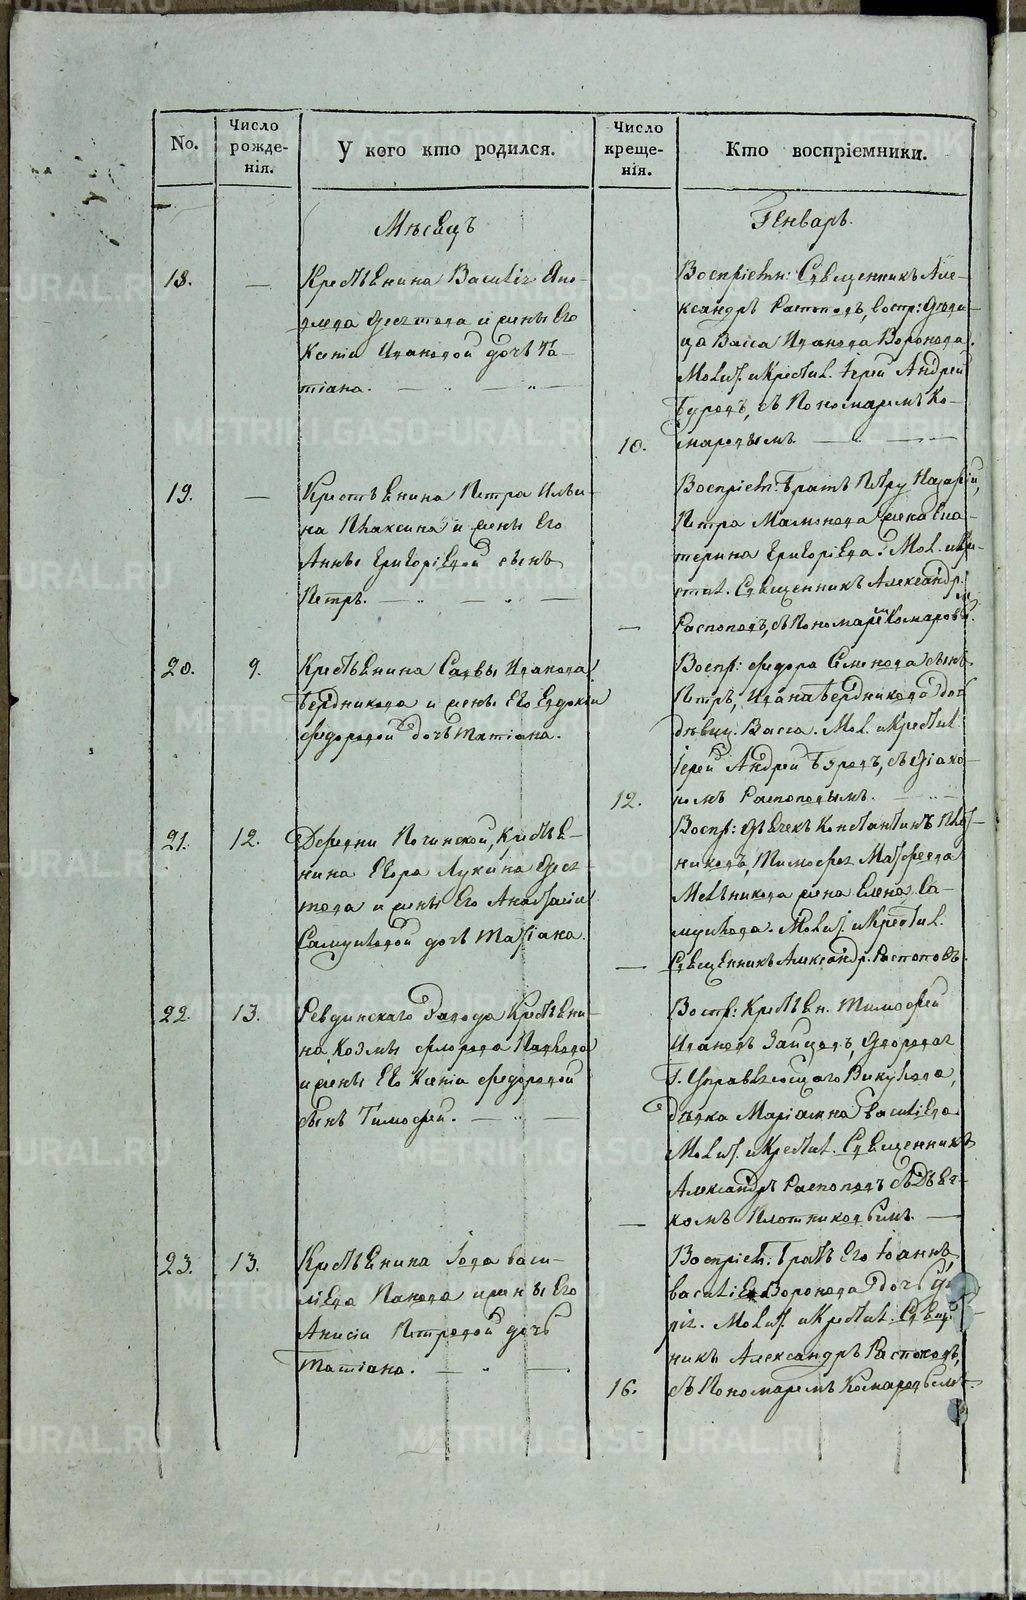 No.
Число рожде-
нія.
У кого кто родился.
Число креще-
нія.
Кто воспріемники.
Мѣсяцъ
Генварь.
18.
—
Крестьянина Василія
и жены Его
Ксеніи Ивановой дочь Та-
тіана.
10.
Воспріемн: Священникъ Але-
ксандръ Распоповъ, воспр: дѣви-
ца Васса Иванова Воронова.
Молит. и Крестил. Іерей Андрей
съ Пономаремъ Ко-
маровымъ
19.
—
Крестьянина Петра Ильи-
на и жены Его
Анны Григоріевой сынъ
Петръ.
—
Воспріем: братъ Петру Назарій,
Петра Мамонова жена Ека-
терина Григоріева. Мол. и Кре-
стил. Священникъ Александръ
Распоповъ, съ Пономаремъ Комаровы.
20.
9.
Крестьянина Саввы Иванова
Бердникова и жены Его Евдокіи
Федоровой дочь Татіана.
12.
Воспр: Федора Семенова сынъ
Петръ, Ивана Бердникова доч
дѣвиц. Васса. Мол. и Крестил.
Іерей Андрей съ Діако-
номъ Распоповымъ.
21.
12.
Деревни Починской, Крестья-
нина Егора Лукина
и жены Его Анастасіи
Самуиловой доч Татіана.
—
Воспр: Дьячекъ Константинъ Плот-
никовъ, Тимофея Матфеева
Мельникова жена Елена Са-
муилова. Молит. и Крестил.
Священникъ Александр. Распоповъ.
22.
13.
Ревдинскаго Завода Крестьяни-
на Козмы Флорова
и жены Его Ксеніи Федоровой
сынъ Тимофей.
—
Воспр: Крестьян. Тимофей
Ивановъ Зайцовъ, дворовая
Г. Управляющаго Викулова,
дѣвка Маріамна Василіева
Молит. и Крестил. Священникъ
Александръ Распоповъ съ Дьяч-
комъ Плотниковымъ.
23.
13.
Крестьянина Іова Васи-
ліева Попова и жены Его
Анисіи Петровой дочь
Татіана.
16.
Воспріем: братъ Его Іоаннъ,
Василіева Воронова дочь
Молит. и Крестил. Священ
никъ Александръ Распоповъ,
съ Пономаремъ Комаровымъ.
METRIKI.GASO-URAL.RU